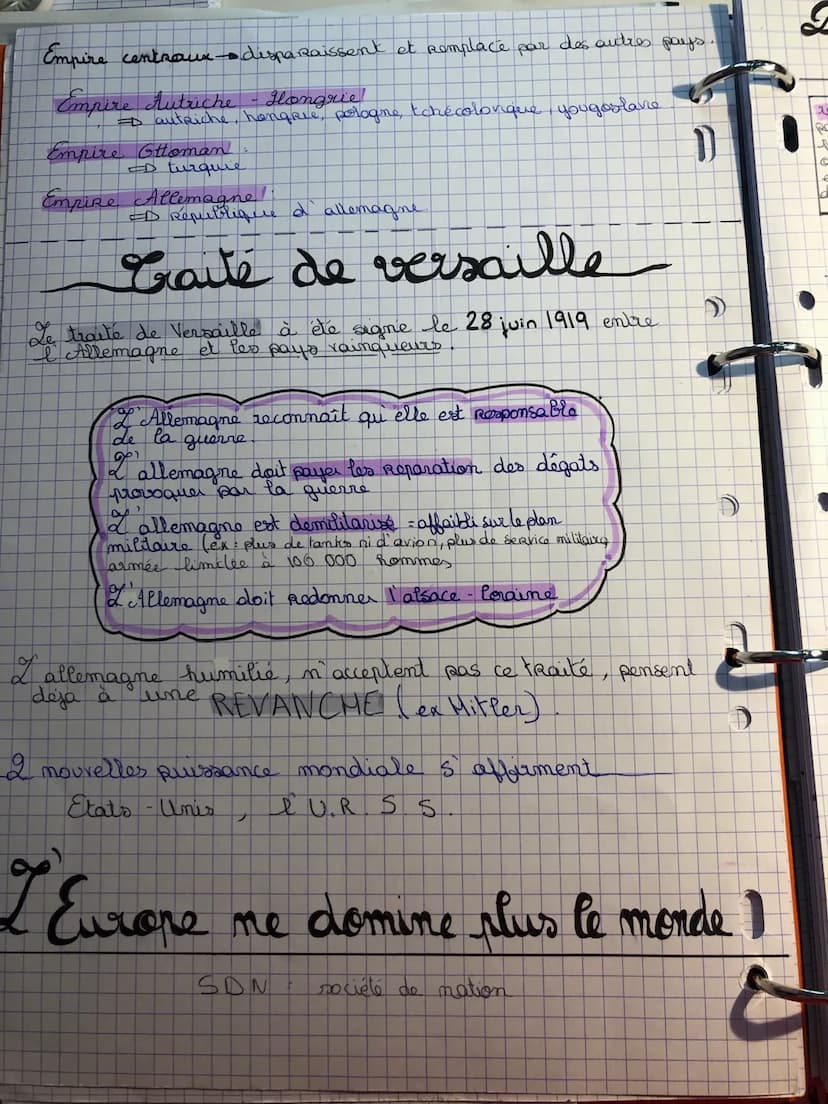 Empire centraux → disparaissent et remplacé par des autres pays.
Empire Autriche - Hongrie
⇒ autriche, hongrie, pologne, tchécolonquie, yougoslavie
Empire Ottoman :
⇒ turquie
Empire Allemagne :
⇒ République d'allemagne
Traité de versaille
Le traité de Versaille à été signé le 28 juin 1919 entre
l'Allemagne et les pays vainqueurs.
L'Allemagne reconnaît qu'elle est responsable
de la guerre.
L'allemagne doit payer les reparation des dégats
provoquer par la guerre
L'allemagne est demilitarisé = affaibli sur le plan
militaire (ex : plus de tanks ni d'avion, plus de service militaire,
armée limitée à 100 000 hommes
L'Allemagne doit redonner l'alsace - loraine
L'allemagne humilié, n'acceptent pas ce traité, pensent
déja à une REVANCHE (ex Hitler).
2 nouvelles puissance mondiale s'affirment
Etats - Unis, l'U.R.S.S.
L'Europe ne domine plus le monde
SDN : société de nation